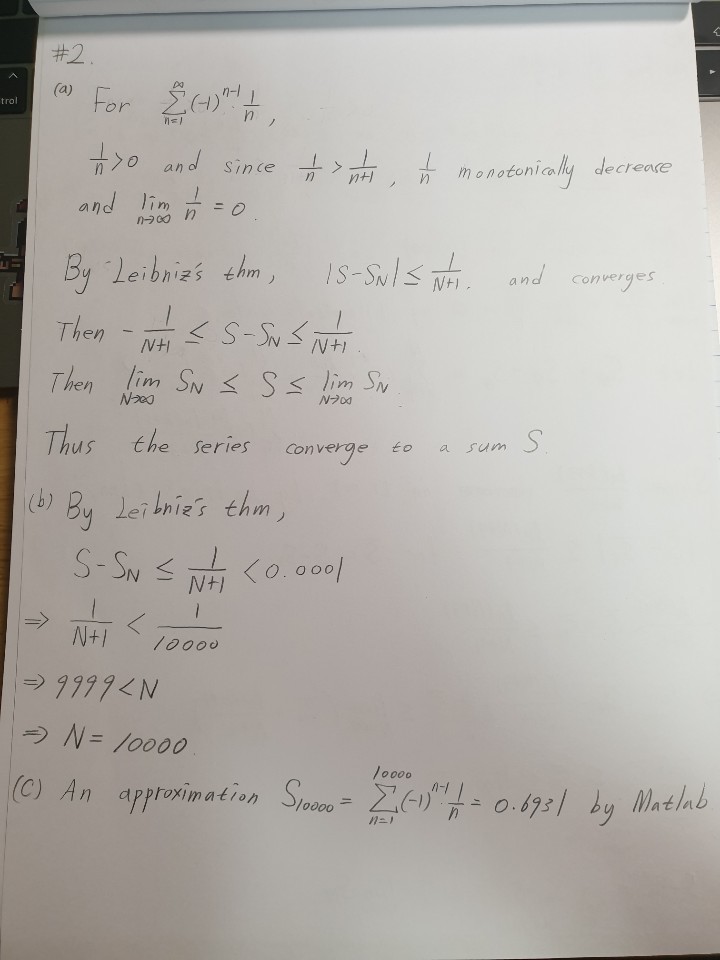 #2.
(a) For ∞Σn=1 (-1)^n-1 · 1/n ,
1/n > 0 and since 1/n > 1/n+1 , 1/n monotonically decrease
and lim n→∞ 1/n = 0.
By Leibniz's thm, |S-SN| ≤ 1/N+1. and converges.
Then - 1/N+1 ≤ S-SN ≤ 1/N+1.
Then lim N→∞ SN ≤ S ≤ lim N→∞ SN.
Thus the series converge to a sum S.
(b) By Leibniz's thm,
S-SN ≤ 1/N+1 < 0.0001
⇒ 1/N+1 < 1/10000
⇒ 9999 < N
⇒ N = 10000.
(C) An approximation S10000 = 10000Σn=1 (-1)^n-1 · 1/n = 0.6931 by Matlab
trol